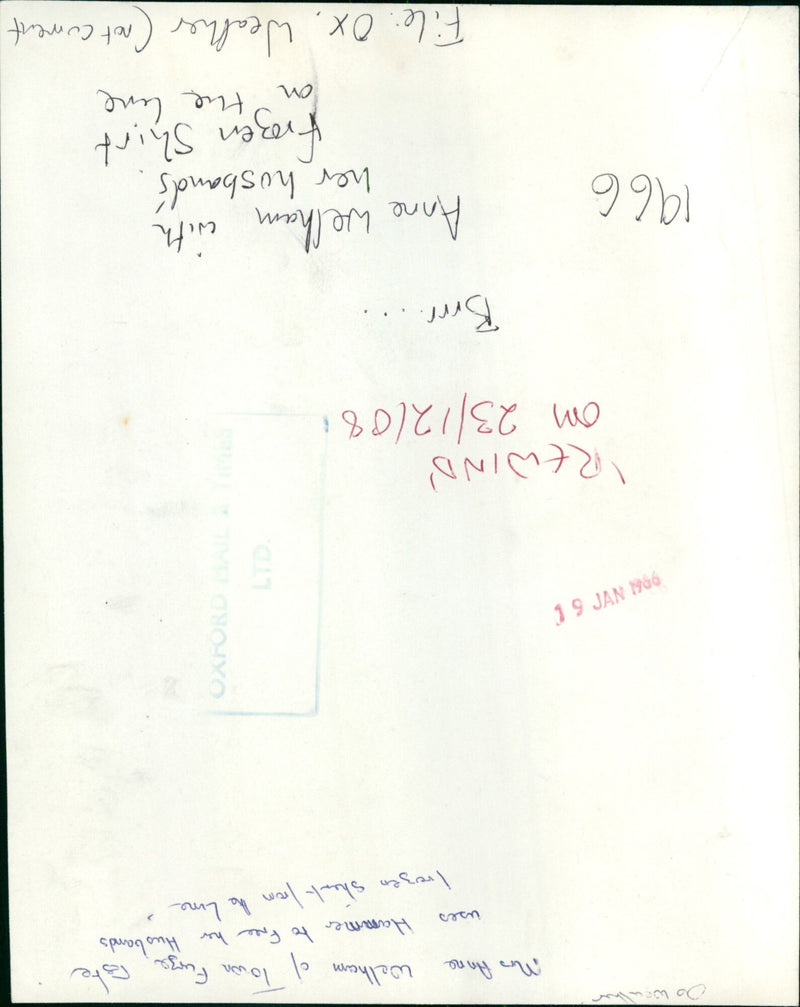 Ox weather
Mrs Anne Welham of Town Furze,
uses Hammer to Free her Husbands
frozen Shirt from the line
19 JAN 1966
OXFORD MAIL & TIMES
LTD.
'REWIND'
on 23/12/08
Brrr....
1966
Anne Welham with
her husbands'
Frozen Shirt
on the line
File: Ox. Weather (not current